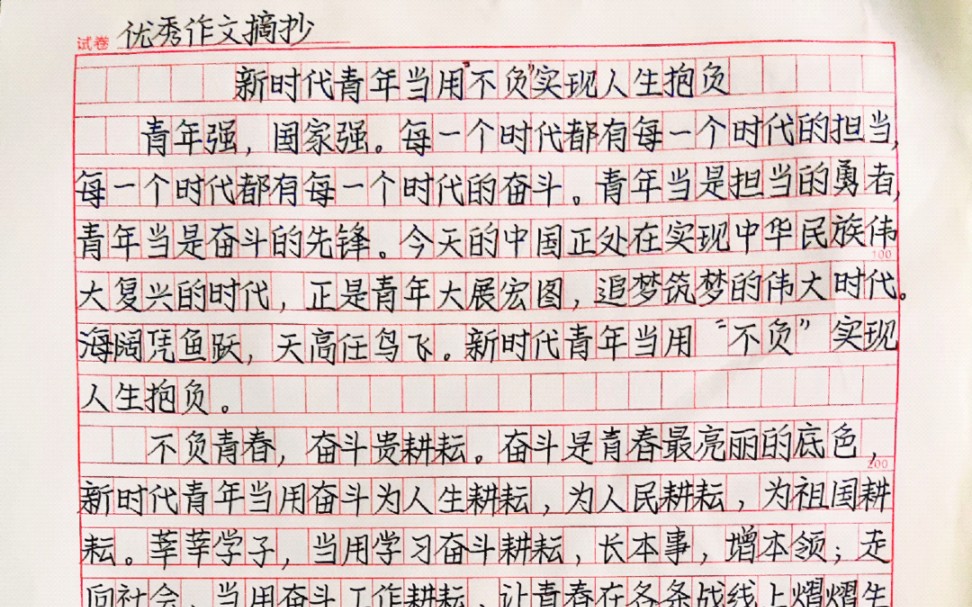 试卷 优秀作文摘抄
新时代青年当用"不负"实现人生抱负
青年强，国家强。每一个时代都有每一个时代的担当，
每一个时代都有每一个时代的奋斗。青年当是担当的勇者，
青年当是奋斗的先锋。今天的中国正处在实现中华民族伟
100
大复兴的时代，正是青年大展宏图，追梦筑梦的伟大时代。
海阔凭鱼跃，天高任鸟飞。新时代青年当用“不负”实现
人生抱负。
不负青春，奋斗贵耕耘。奋斗是青春最亮丽的底色，
200
新时代青年当用奋斗为人生耕耘，为人民耕耘，为祖国耕
耘。莘莘学子，当用学习奋斗耕耘，长本事，增本领；走
向社会，当用奋斗工作耕耘，让青春在各条战线上熠熠生